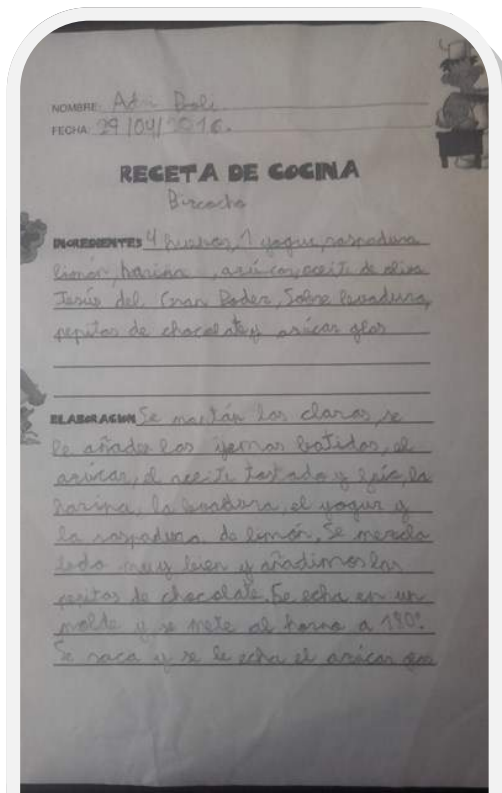 NOMBRE: Adri
FECHA: 29/04/2016.
RECETA DE COCINA
Bizcocho
INGREDIENTES 4 huevos, 1 yogur, raspadura
limón, harina, azúcar, aceite de oliva
Jesús del Gran Poder, Sobre levadura,
pepitas de chocolate, azúcar glas
ELABORACION Se las claras, se
le añade las yemas batidas, el
azúcar, el aceite tostado y frío, la
harina, la levadura, el yogur y
la raspadura de limón. Se mezcla
todo muy bien y añadimos las
pepitas de chocolate. Se echa en un
molde y se mete al horno a 180º
Se saca y se le echa el azúcar